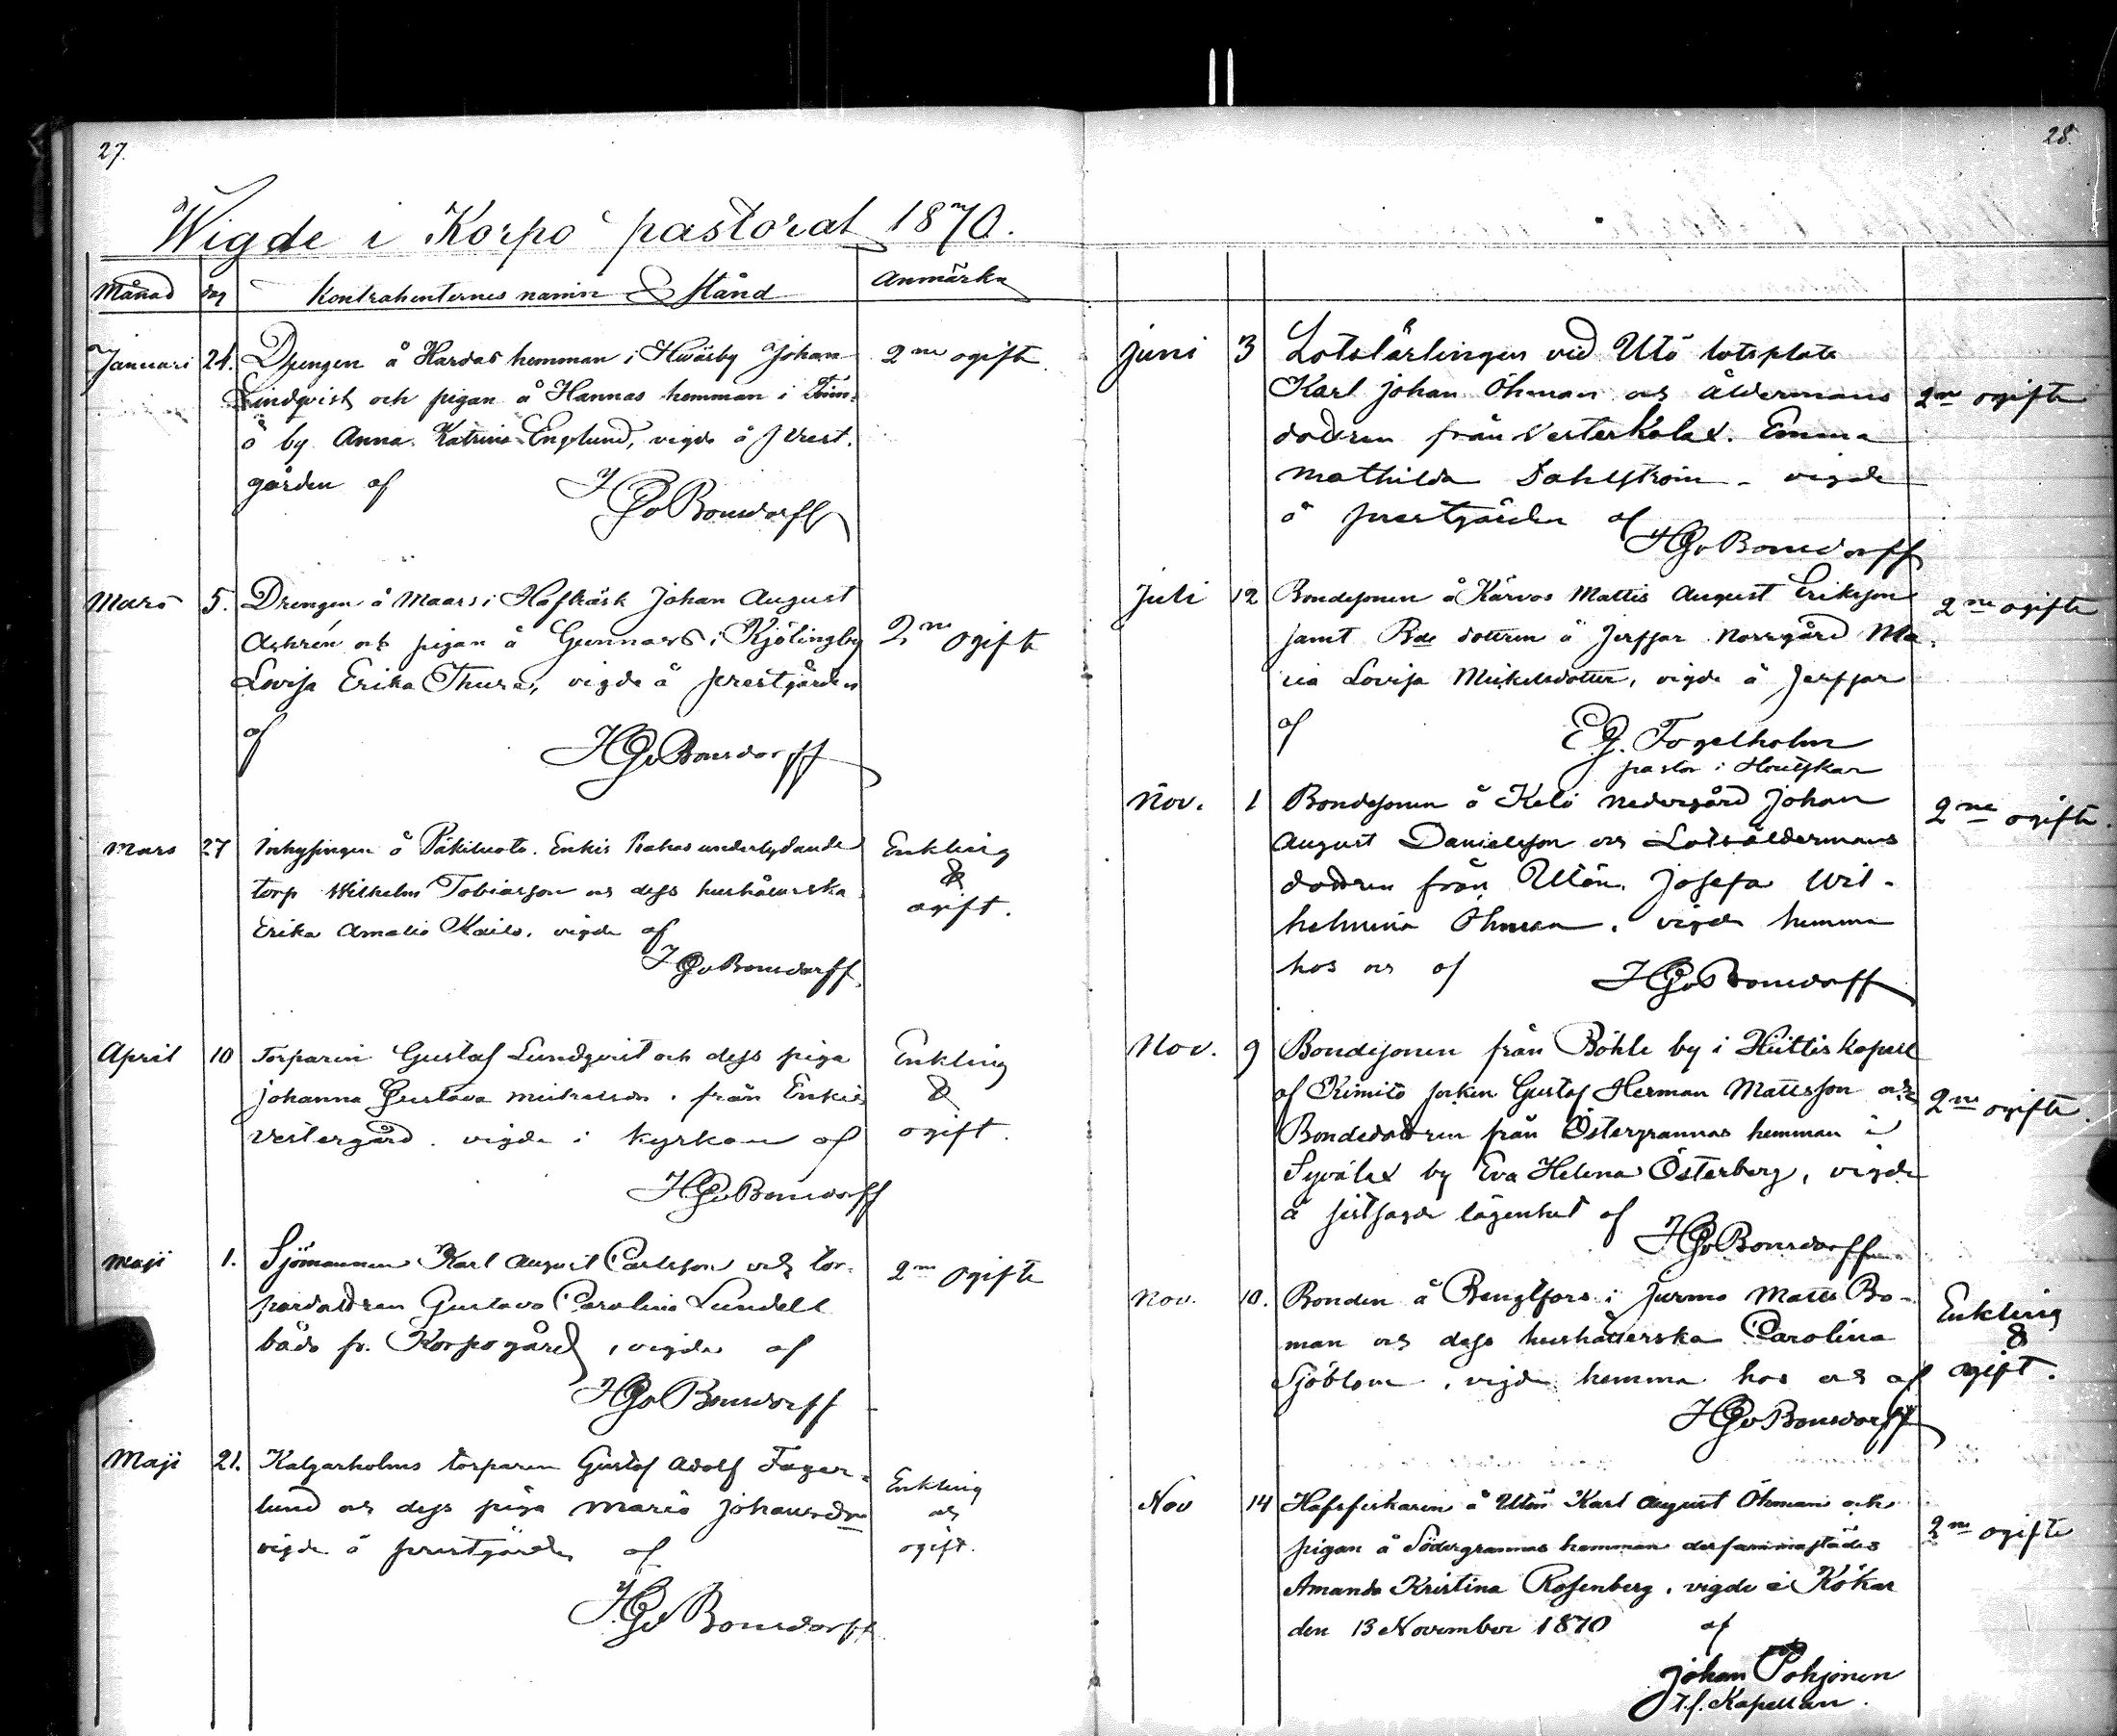 27.
Wigde i Korpo pastorat 1870.
Månad dag Kontrahenternes namn & Stånd Anmärkn
Januari 24. Drengen å Hardas hemman i Hväsby Johan 2ne ogifte.
Lindqvist och pigan å Hannas hemman i
ö by Anna Katrina Englund, vigde å prest-
gården af
HGvBonsdorff
Mars 5. Drengen å Maars i Hafträsk Johan August
Askrén och pigan å Gunnars i Kjölingby 2ne ogifte
Lovisa Erika Thure, vigde å prestgården
af
HGvBonsdorff
Mars 27 Inhysingen å Päkiluoto. Enkis Rahas underlydande Enkling
&
torp Wilhelm Tobiasson och dess hushållerska ogift.
Erika Amalia Kaila. vigde af
HGvBonsdorff.
April 10 Torparen Gustaf Lundqvist och dess piga Enkling
Johanna Gustava Mickelsdr. från Enkis &
Vestergård. vigde i kyrkan af ogift.
HGvBonsdorff
Maji 1. Sjömannen Karl August Carlsson och tor- 2ne ogifte
pardottren Gustava Carolina Lundell
båda fr. Korpogård, vigde af
HGvBonsdorff
Maji 21. Kalgarholms torparen Gustaf Adolf Fager- Enkling
lund och dess piga Maria Johansdr och
vigde å prestgården af ogift.
HGvBonsdorff
28.
Juni 3 Lotslärlingen vid Utö lotsplats
Karl Johan Öhman och Åldermans 2ne ogifte
dottren från Vesterkalax. Emma
Mathilda Dahlström - vigde
å prestgården af
HGvBonsdorff
Juli 12 Bondesonen å Kärvas Mattis August Eriksson 2ne ogifte
samt Bde dottren å Jerssor Norrgård Ma-
ria Lovisa Mickelsdotter, vigde å Jerssor
af
EG. Fogelholm
pastor i Houtskär
Nov. 1 Bondesonen å Kelö Nedergård Johan 2ne ogifte.
August Danielsson och Lotsåldermans
dottren från Utön. Josefa Wil-
helmina Öhman. vigde hemma
hos oss af
HGvBonsdorff
Nov. 9 Bondesonen från Böhle by i Hiittis kapell
af Kimito socken Gustaf Herman Mattsson och 2ne ogifte.
Bondedottren från Östergrannas hemman i
Syvälax by Eva Helena Österberg, vigde
å sistsagde lägenhet af
HGvBonsdorff
Nov. 10. Bonden å Bengtsors i Jurmo Matts Bo- Enkling
man och dess hushållerska Carolina &
Sjöblom, vigde hemma hos oss af ogift.
HGvBonsdorff
Nov 14 Hafsfiskaren å Utön Karl August Öhman och 2ne ogifte
pigan å Södergrannas hemman dersammastädes
Amanda Kristina Rosenberg, vigde i Kökar
den 13 November 1870 af
Johan Pohjonen
t.f. Kapellan.